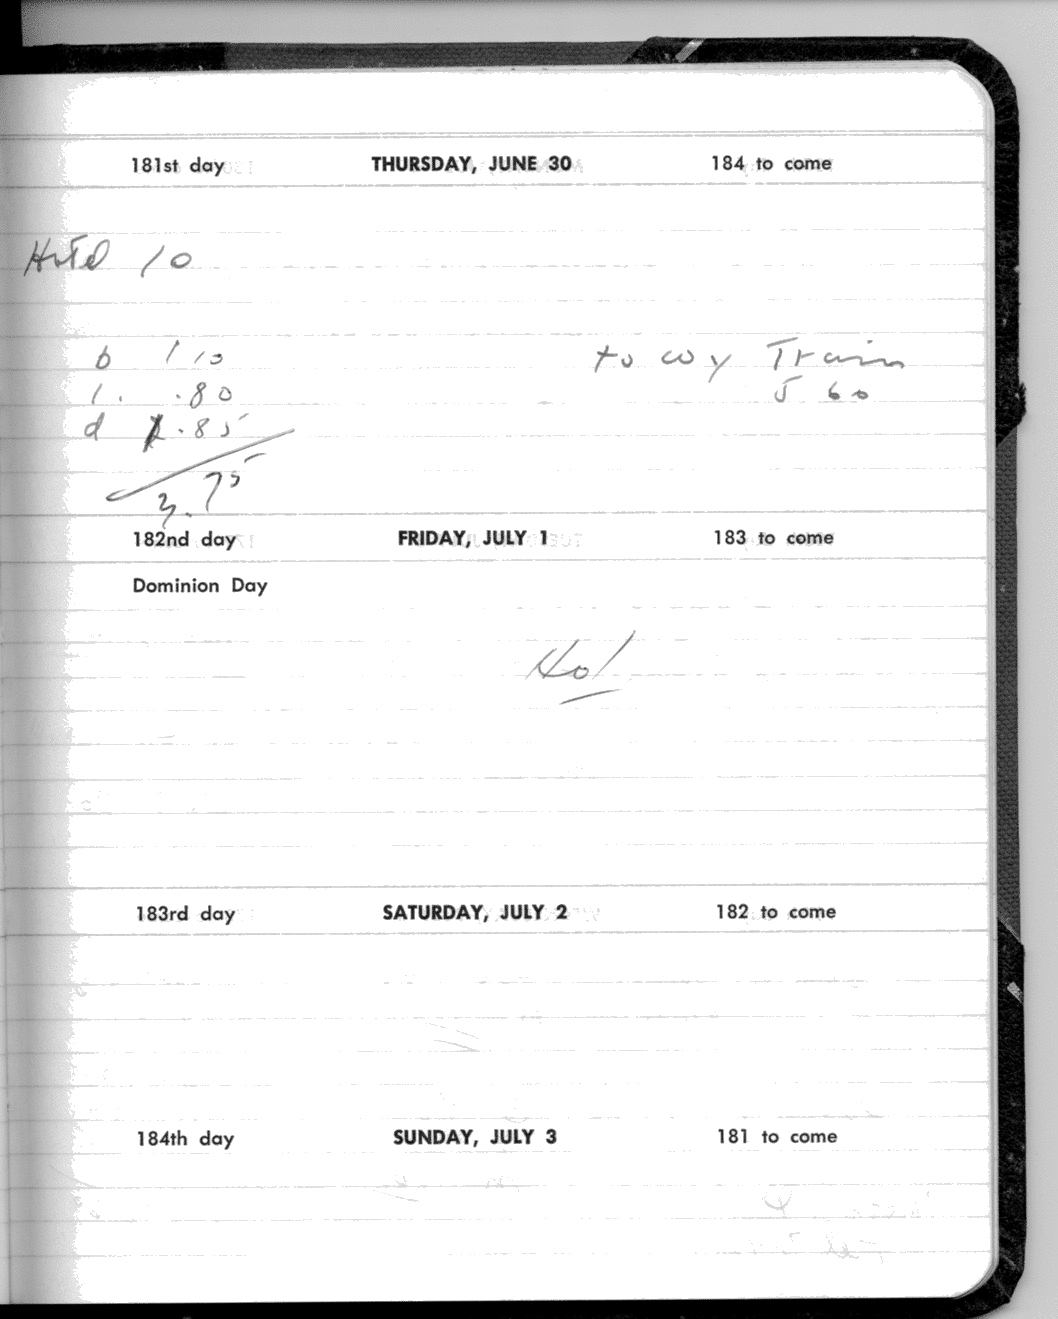 181st day THURSDAY, JUNE 30 184 to come
Hotel 10
b 1 10 to wy Train
l. .80 5 60
d 1.85
3.75
182nd day FRIDAY, JULY 1 183 to come
Dominion Day
Ho!
183rd day SATURDAY, JULY 2 182 to come
184th day SUNDAY, JULY 3 181 to come